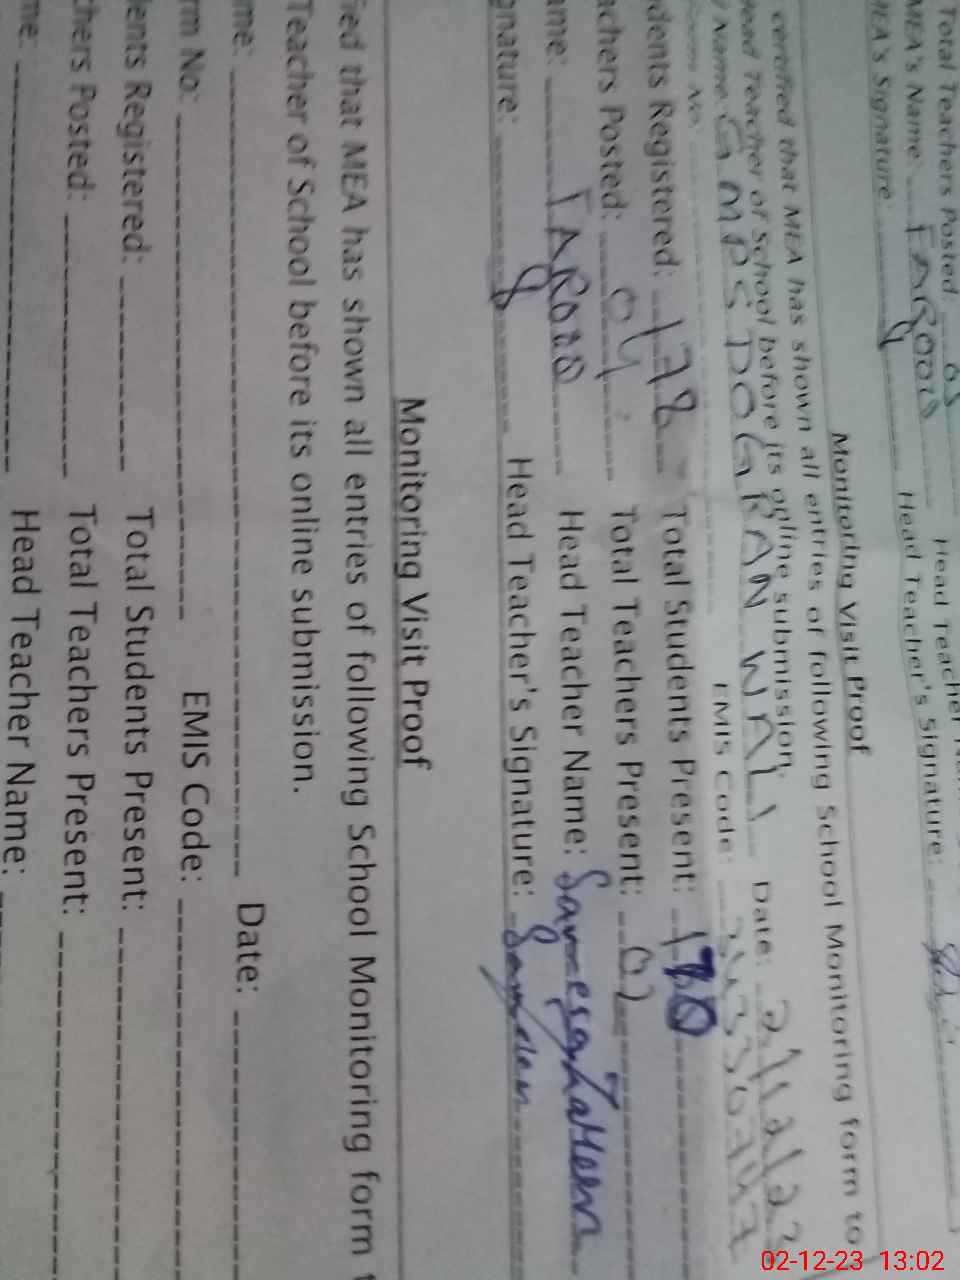 Total Teachers Posted: 05
MEA's Name: FAROOQ Head Teacher
MEA's Signature: Head Teacher's Signature:
Monitoring Visit Proof
certified that MEA has shown all entries of following School Monitoring form to
Head Teacher of School before its online submission.
Name: GMPS DOGRAN WALI Date: 2/12/23
Form No: EMIS Code:
dents Registered: 178 Total Students Present: 130
achers Posted: 04 Total Teachers Present: 02
ame: FAROOQ Head Teacher Name:
gnature: Head Teacher's Signature:
Monitoring Visit Proof
fied that MEA has shown all entries of following School Monitoring form t
Teacher of School before its online submission.
me: Date:
rm No: EMIS Code:
dents Registered: Total Students Present:
chers Posted: Total Teachers Present:
me: Head Teacher Name:
02-12-23 13:02